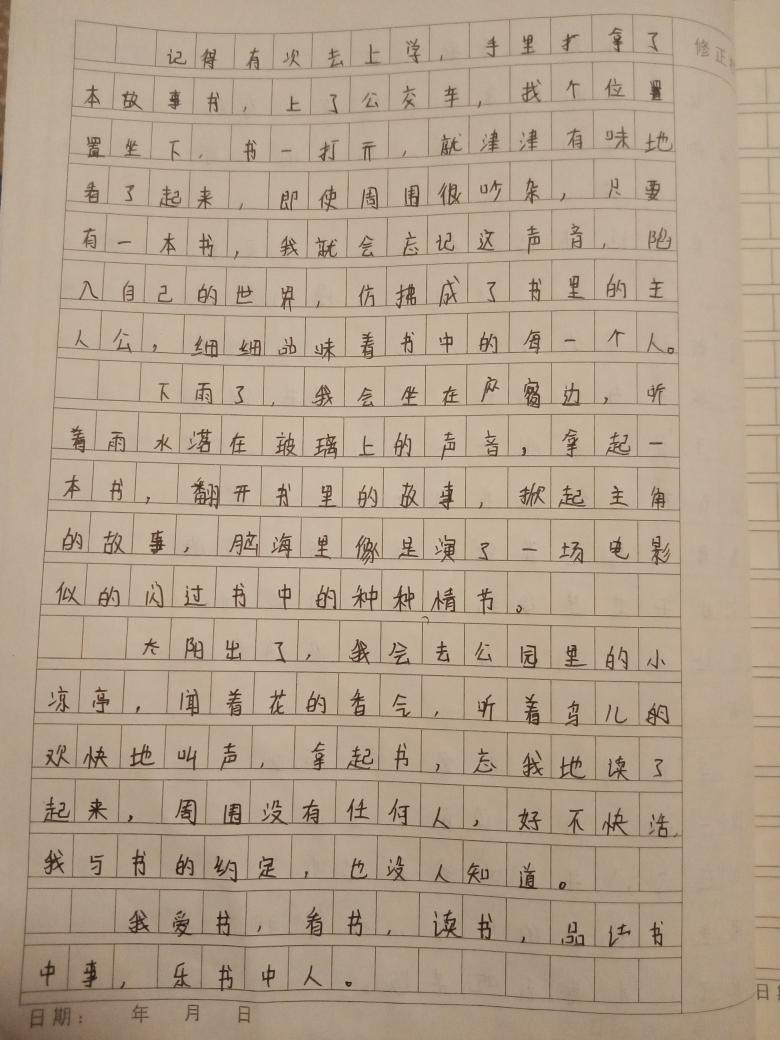 记得有次去上学，手里拿了
修正
本故事书，上了公交车，找个位
置坐下，书一打开，就津津有味地
看了起来，即使周围很吵杂，只要
有一本书，我就会忘记这声音，陷
入自己的世界，仿拂成了书里的主
人公，细细品味着书中的每一个人。
下雨了，我会坐在窗边，听
着雨水落在玻璃上的声音，拿起一
本书，翻开书里的故事，掀起主角
的故事，脑海里像是演了一场电影
似的闪过书中的种种情节。
太阳出了，我会去公园里的小
凉亭，闻着花的香气，听着鸟儿的
欢快地叫声，拿起书，忘我地读了
起来，周围没有任何人，好不快活，
我与书的约定，也没人知道。
我爱书，看书，读书，品书
中事，乐书中人。
日期：年月日
日